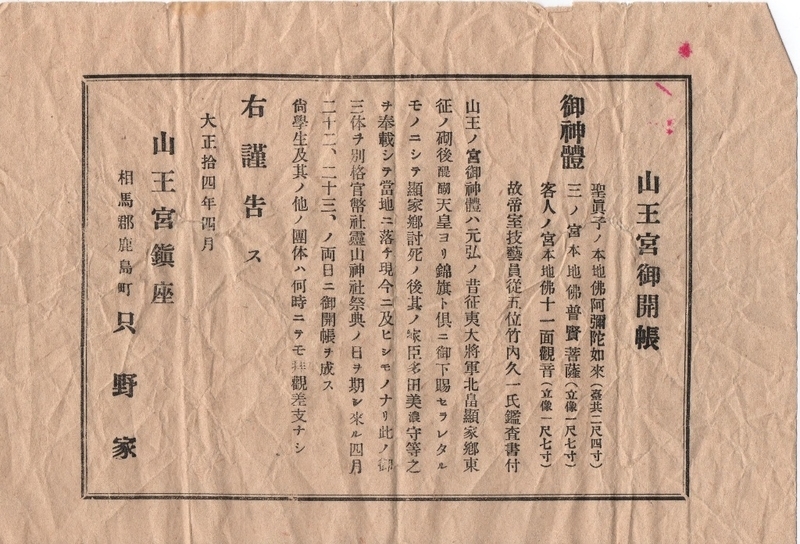 山王宮御開帳
聖眞子ノ本地佛阿彌陀如來(臺共二尺四寸)
御神體 三ノ宮本地佛普賢菩薩(立像一尺七寸)
客人ノ宮本地佛十一面觀音(立像一尺七寸)
故帝室技藝員從五位竹內久一氏鑑査書付
山王ノ宮御神體ハ元弘ノ昔征夷大將軍北畠顯家鄕東
征ノ砌後醍醐天皇ヨリ錦旗ト倶ニ御下賜セラレタル
モノニシテ顯家鄕討死ノ後其ノ家臣多田美濃守等之
ヲ奉載シテ當地ニ落チ現今ニ及ヒシモノナリ此ノ御
三体ヲ別格官幣社靈山神社祭典ノ日ヲ期シ來ル四月
二十二、二十三、ノ両日ニ御開帳ヲ成ス
尙學生及其ノ他ノ團体ハ何時ニテモ拜觀差支ナシ
右謹告ス
大正拾四年四月
山王宮鎭座
相馬郡鹿島町 只野家